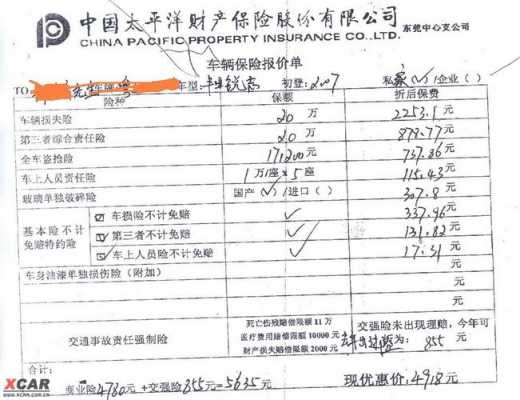 中国太平洋财产保险股份有限公司 东莞中心支公司
CHINA PACIFIC PROPERTY INSURANCE CO.,LTD.
车辆保险报价单
TO 先生 车型: 锐志 初登: 2007 私家(✓)/企业( )
险种 保额 折后保费
车辆损失险 20万 2253.1元
第三者综合责任险 20万 878.77元
全车盗抢险 171200元 737.86元
车上人员责任险 1万/座×5座 115.43元
玻璃单独破碎险 国产(✓)/进口( ) 307.8元
基本险不计免赔特约险
☑ 车损险不计免赔 ✓ 337.96元
☑ 第三者不计免赔 ✓ 131.82元
☑ 车上人员险不计免赔 ✓ 17.31元
车身油漆单独损伤险(附加) 元
元
交通事故责任强制险
死亡伤残赔偿限额11万
医疗费用赔偿限额10000元
财产损失赔偿限额2000元
交强险未出现理赔,今年可
为: 855元
合计:
商业险4780元+交强险855元=5635元 现优惠价:4918元
XCAR
www.xcar.com.cn